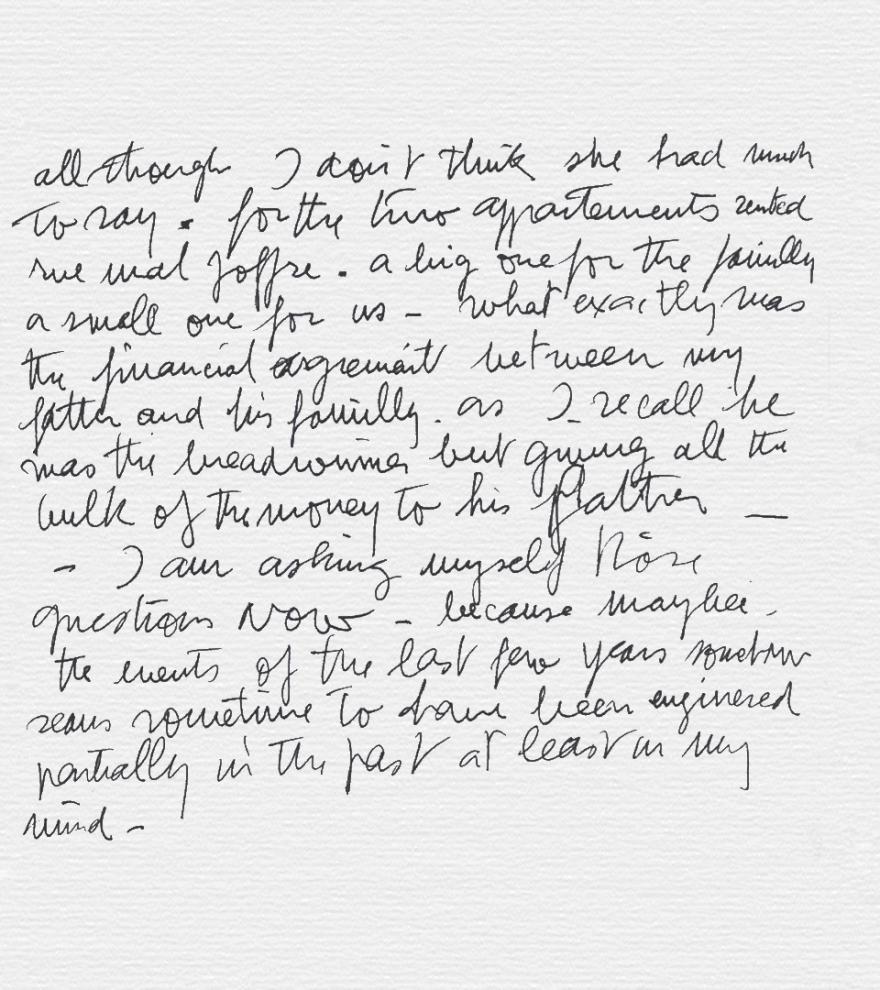 all though I don't think she had much
to say . for the two appartements rented
rue mal Joffre . a big one for the familly
a small one for us - what exactly was
the financial agrement between my
father and his familly . as I recall he
was the breadwinner but giving all the
bulk of the money to his father —
- I am asking myself those
questions Now - because maybee -
the events of the last few years
seams sometime to have been enginered
partially in the past at least in my
mind -